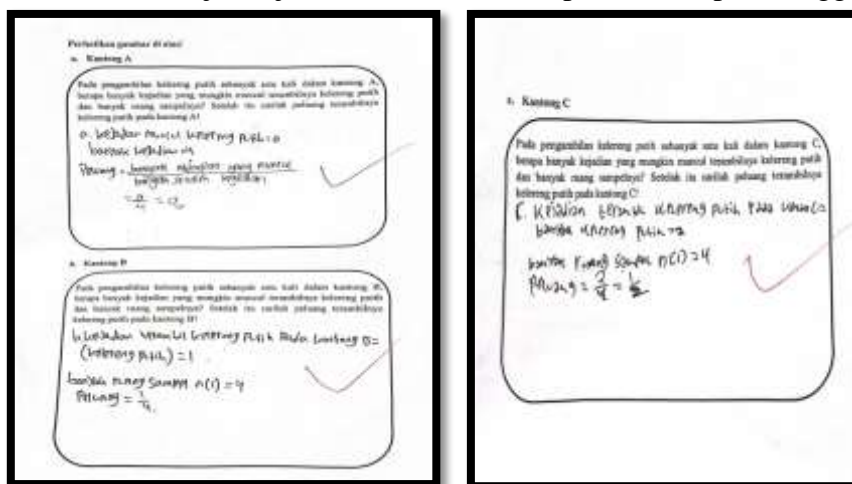 Perhatikan gambar di atas!
a. Kantong A
Pada pengambilan kelereng putih sebanyak satu kali dalam kantong A,
berapa banyak kejadian yang mungkin muncul terambilnya kelereng putih
dan banyak ruang sampelnya? Setelah itu carilah peluang terambilnya
kelereng putih pada kantong A!
a. kejadian muncul kelereng putih = 0
banyak kejadian =
Peluang = banyak kejadian yang muncul
banyak seluruh kejadian
= 0/4 = 0
Kantong B
Pada pengambilan kelereng putih sebanyak satu kali dalam kantong B,
berapa banyak kejadian yang mungkin muncul terambilnya kelereng putih
dan banyak ruang sampelnya? Setelah itu carilah peluang terambilnya
kelereng putih pada kantong B!
b. kejadian kelereng putih Pada kantong B =
(kelereng putih) = 1
banyak ruang sampel n(s) = 4
Peluang = 1/4
Kantong C
Pada pengambilan kelereng putih sebanyak satu kali dalam kantong C,
berapa banyak kejadian yang mungkin muncul terambilnya kelereng putih
dan banyak ruang sampelnya? Setelah itu carilah peluang terambilnya
kelereng putih pada kantong C!
C. Kejadian kelereng putih Pada
banyak kelereng putih = 2
banyak ruang sampel n(s) = 4
Peluang = 2/4 = 1/2